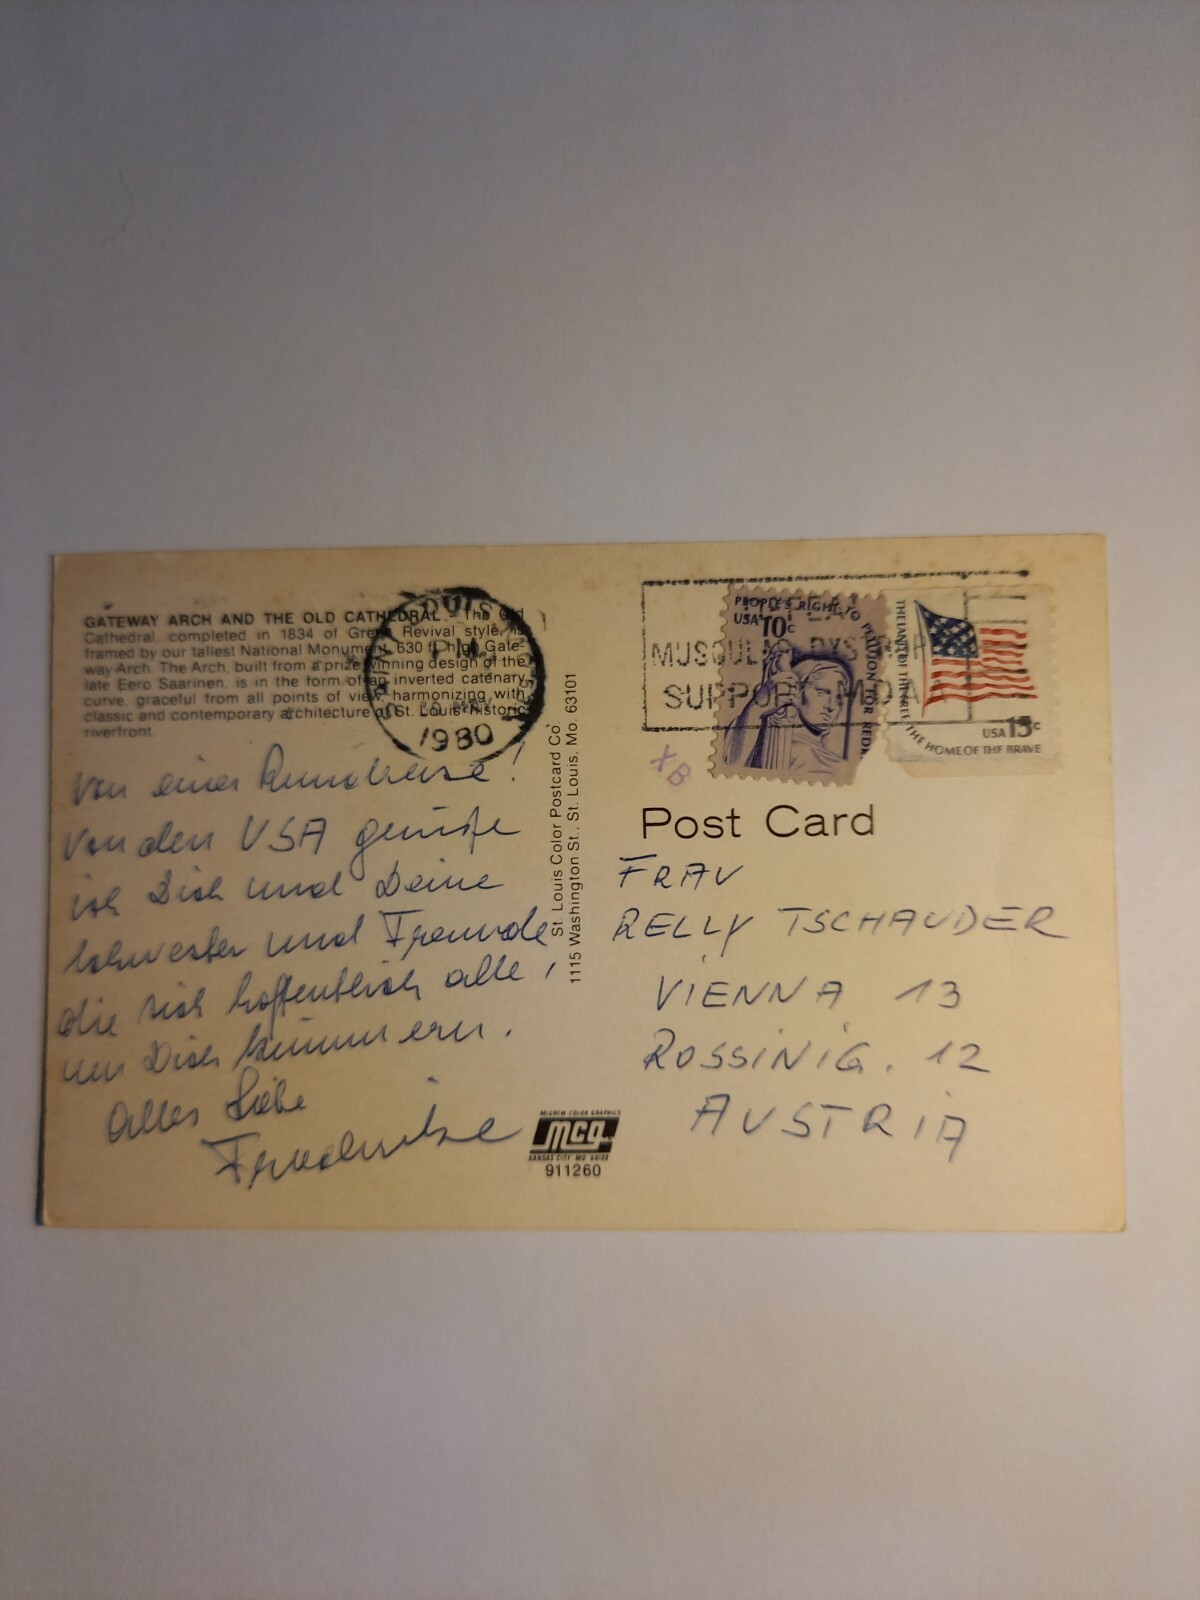 GATEWAY ARCH AND THE OLD CATHEDRAL - The Old
Cathedral, completed in 1834 of Greek Revival style, is
framed by our tallest National Monument, 630 ft. high Gate-
way Arch. The Arch, built from a prize winning design of the
late Eero Saarinen, is in the form of an inverted catenary
curve, graceful from all points of view, harmonizing with
classic and contemporary architecture of St. Louis historic
riverfront.
SAINT LOUIS
PM
MAY
1980
von einer Rundreise!
Von den USA grüße
ich Dich und Deine
Schwester und Freunde,
die sich hoffentlich alle
um Dich kümmern.
Alles Liebe
St. Louis Color Postcard Co.
1115 Washington St., St. Louis, Mo. 63101
McGREW COLOR GRAPHICS
mcg
KANSAS CITY MO 64108
911260
MUSCULAR DYSTROP
SUPPORT MDA
PEOPLE'S RIGHT TO PETITION FOR REDR
USA 10c
THE LAND OF THE FREE THE HOME OF THE BRAVE
USA 15c
XB
Post Card
FRAU
RELLY TSCHAUDER
VIENNA 13
ROSSINIG. 12
AUSTRIA